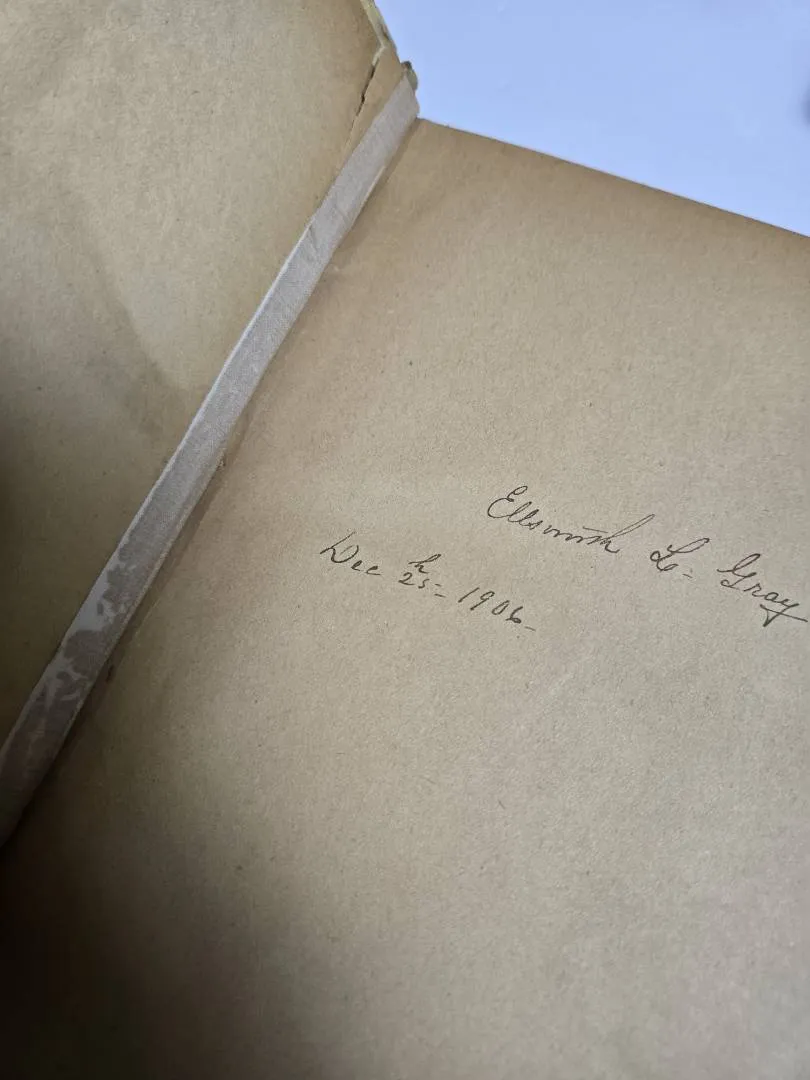 Ellsworth L. Gray
Dec 25th 1906